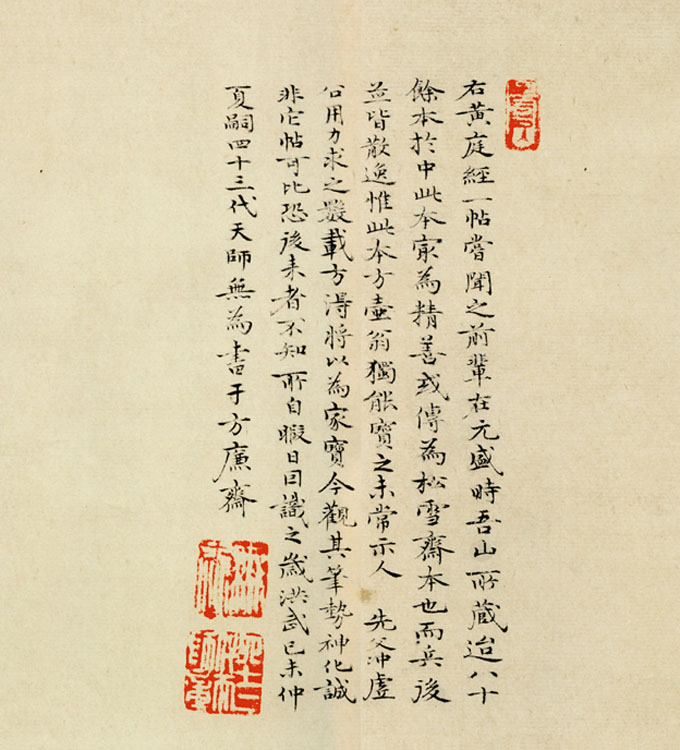 右黃庭經一帖嘗聞之前輩在元盛時吾山所藏迨八十
餘本於中此本㝡為精善或傳為松雪齋本也而兵後
並皆散逸惟此本方壺翁獨能寶之未常示人 先父冲虛
公用力求之數載方得將以為家寶今觀其筆勢神化誠
非它帖可比恐後来者不知所自暇日因識之歲洪武己未仲
夏嗣四十三代天師無為書于方廉齋